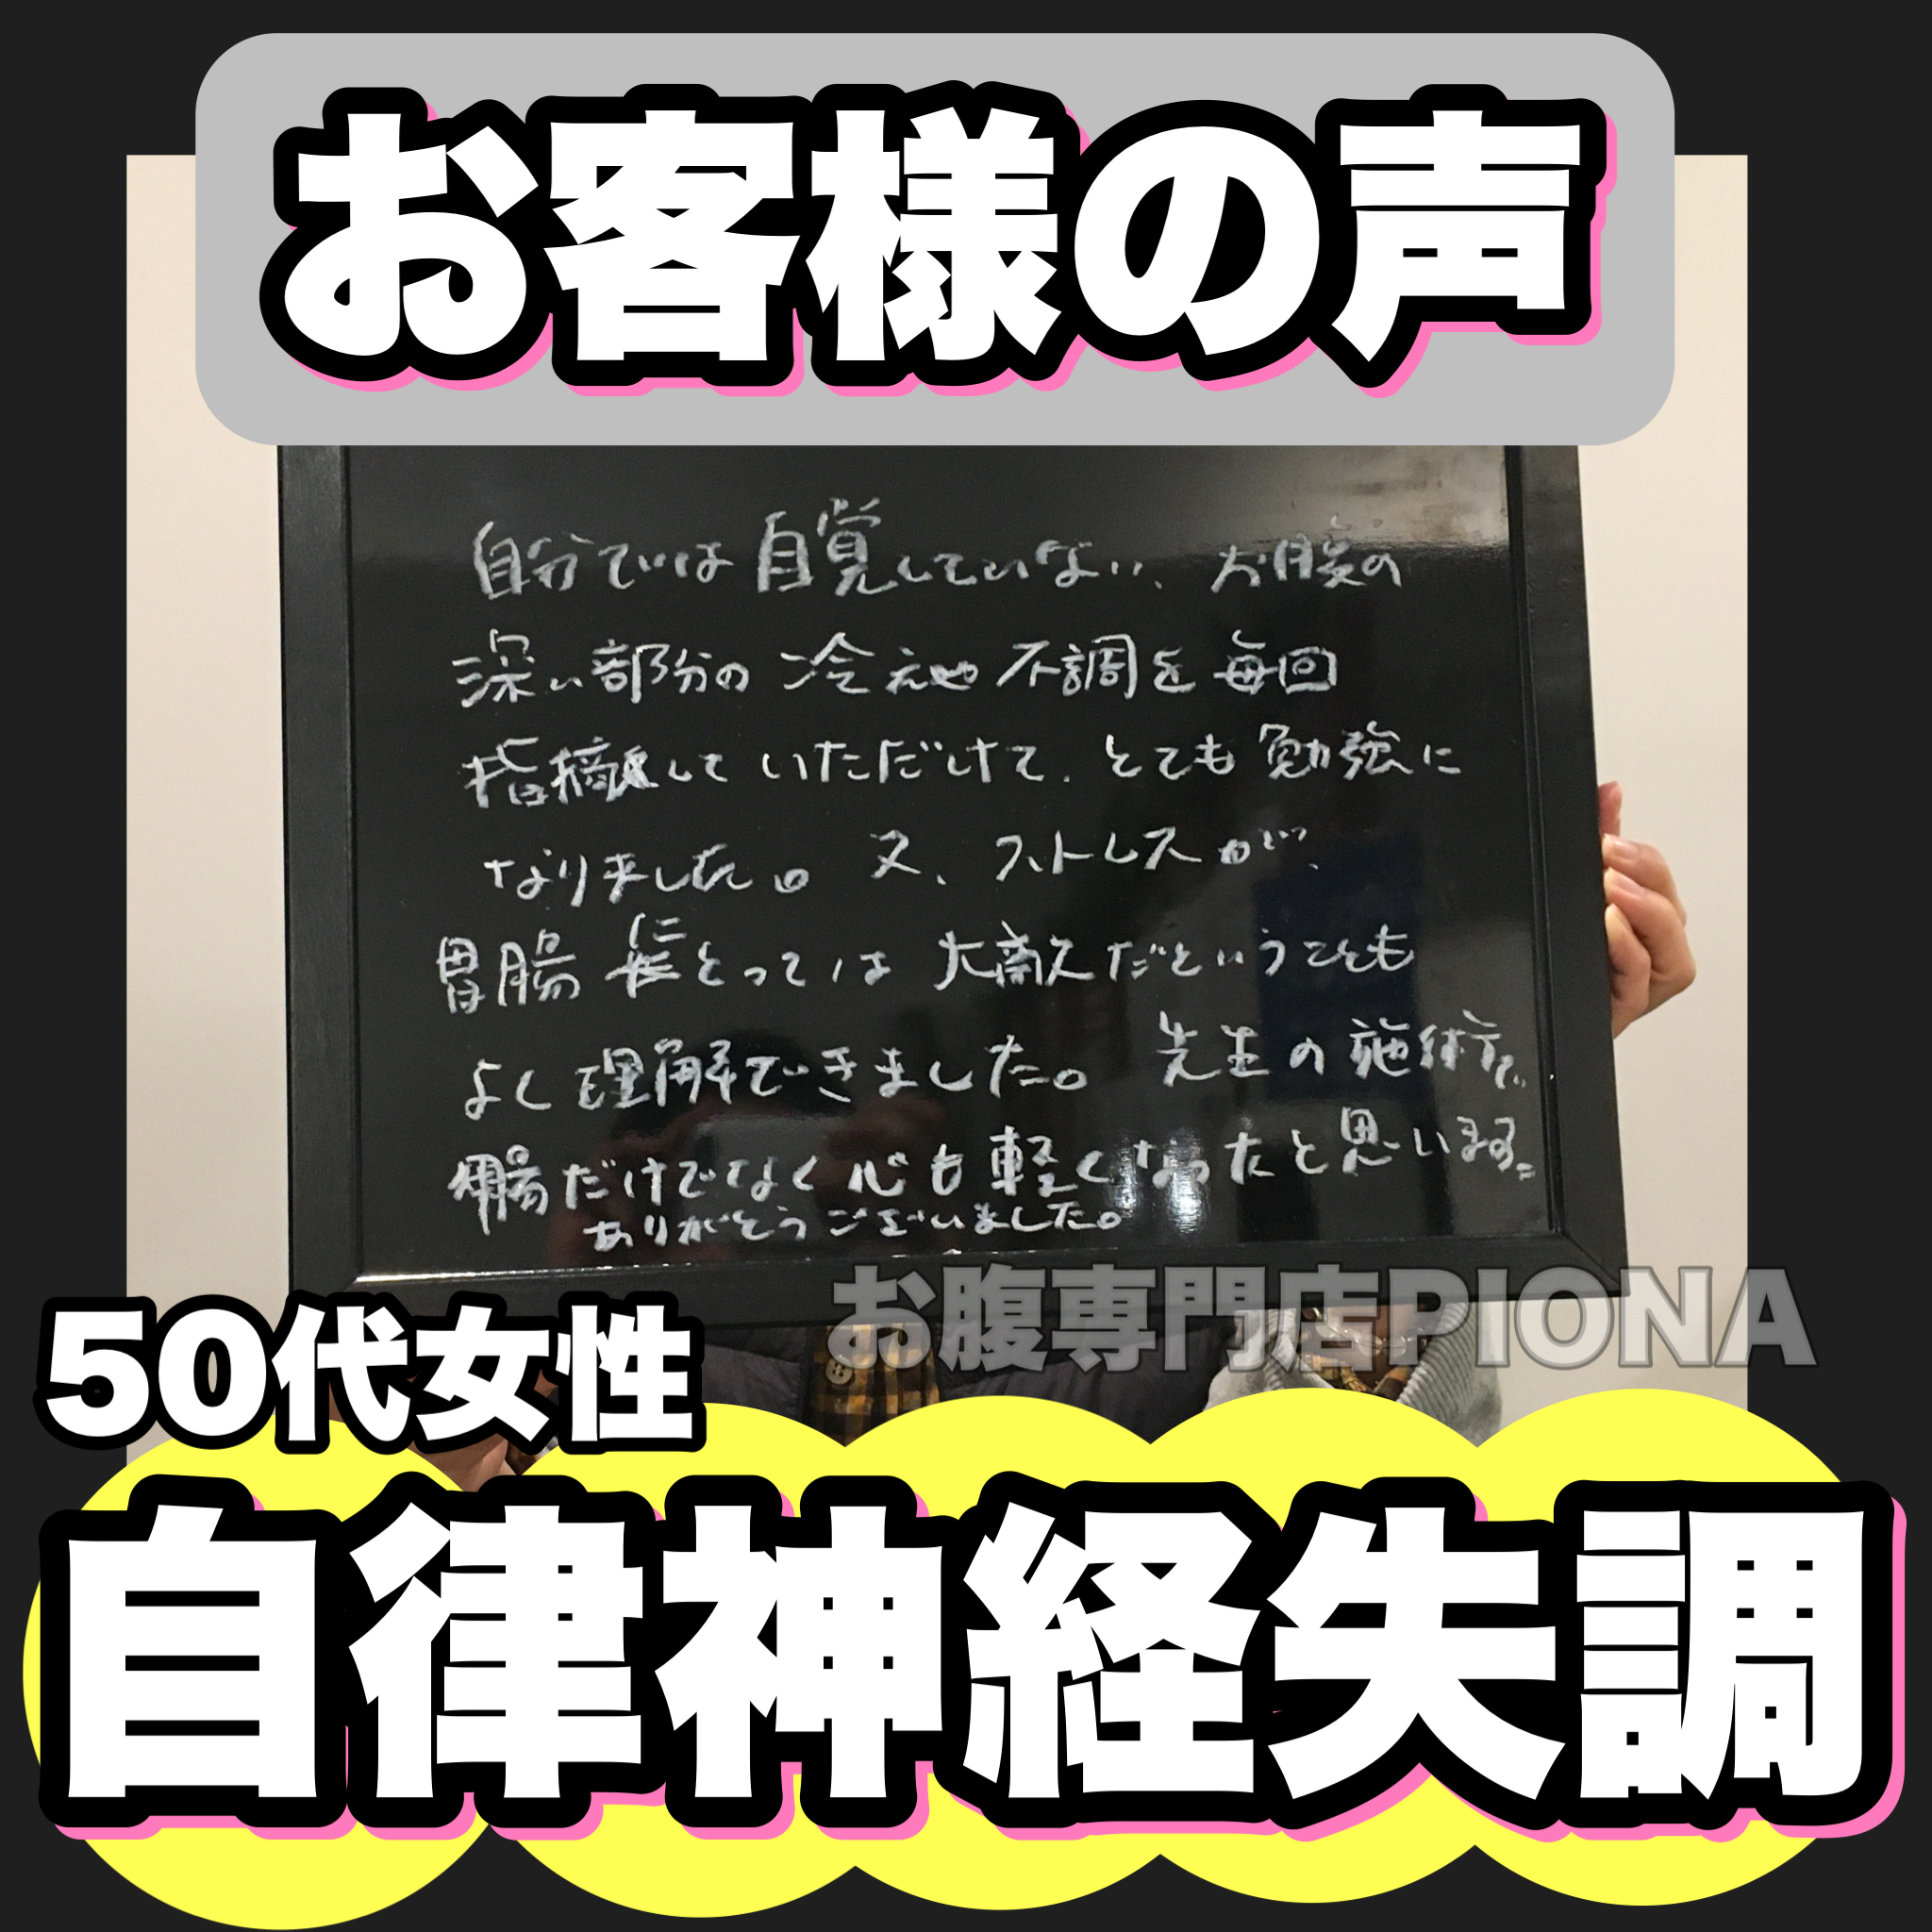 お客様の声
自分では自覚していない、お腹の
深い部分の冷えや不調を毎回
指摘していただけて、とても勉強に
なりました。又、ストレスが、
胃腸にとっては大敵だということも
よく理解できました。先生の施術で、
腸だけでなく心も軽くなったと思います。
ありがとうございました。
お腹専門店PIONA
50代女性
自律神経失調